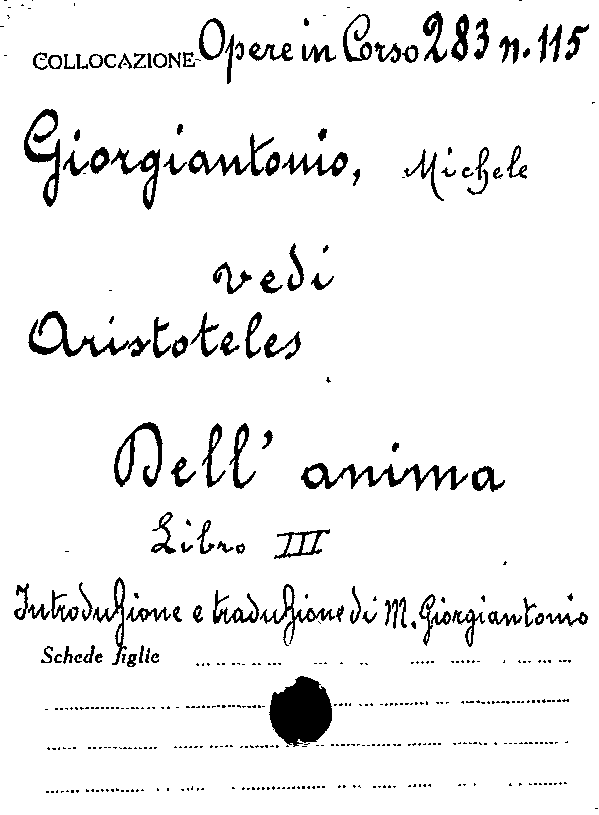 COLLOCAZIONE Opere in Corso 283 n. 115
Giorgiantonio, Michele
vedi
Aristoteles
Dell' anima
Libro III
Introduzione e traduzione di M. Giorgiantonio
Schede figlie